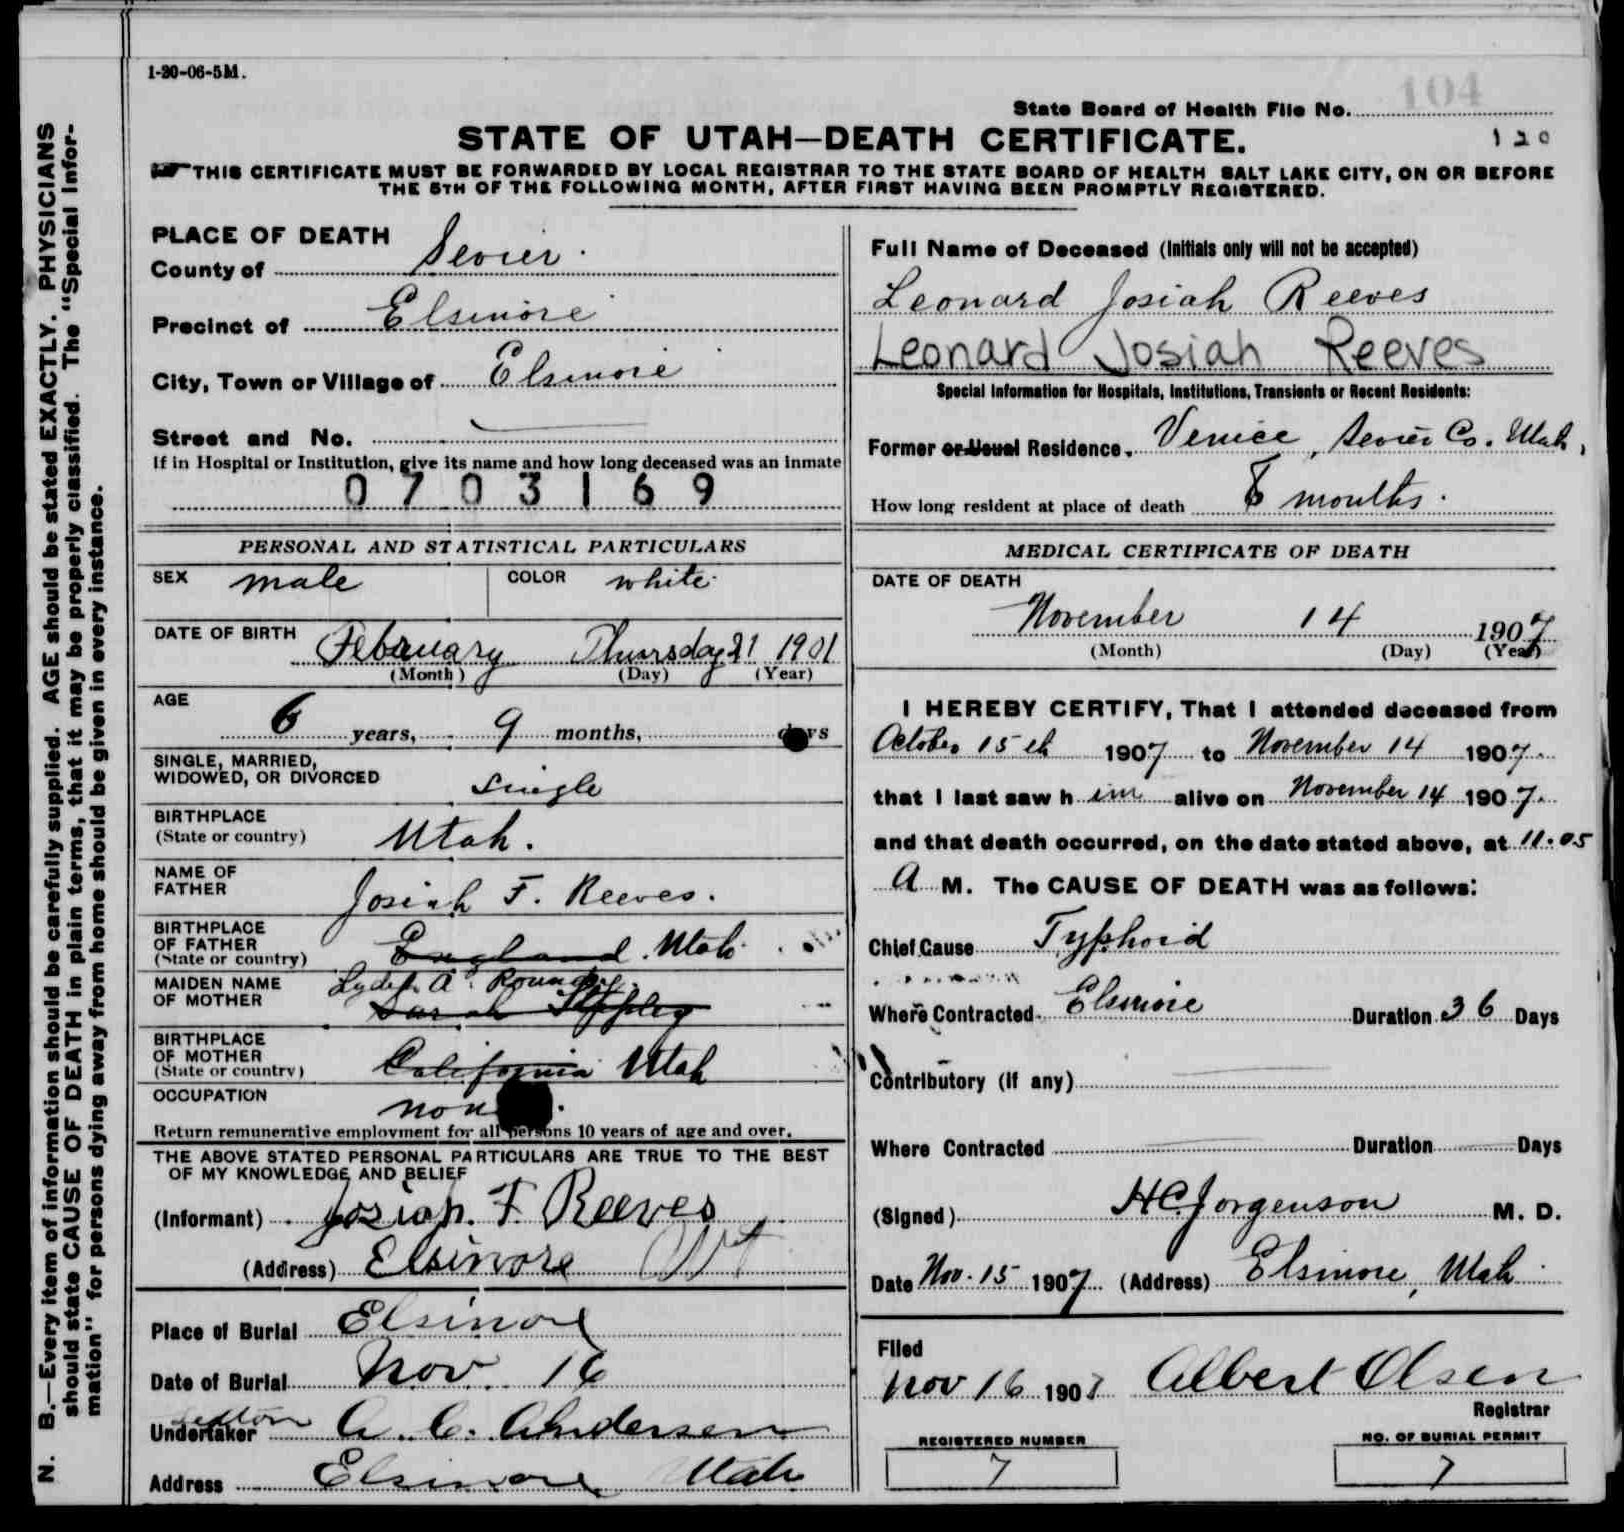 1-20-06-5M.
104
State Board of Health File No.
120
STATE OF UTAH—DEATH CERTIFICATE.
THIS CERTIFICATE MUST BE FORWARDED BY LOCAL REGISTRAR TO THE STATE BOARD OF HEALTH SALT LAKE CITY, ON OR BEFORE
THE 5TH OF THE FOLLOWING MONTH, AFTER FIRST HAVING BEEN PROMPTLY REGISTERED.
N. B.—Every item of information should be carefully supplied. AGE should be stated EXACTLY. PHYSICIANS
should state CAUSE OF DEATH in plain terms, that it may be properly classified. The "Special Infor-
mation" for persons dying away from home should be given in every instance.
PLACE OF DEATH
County of Sevier.
Precinct of Elsinore
City, Town or Village of Elsinore
Street and No.
If in Hospital or Institution, give its name and how long deceased was an inmate
0703169
PERSONAL AND STATISTICAL PARTICULARS
SEX male COLOR white
DATE OF BIRTH February Thursday 21 1901
(Month) (Day) (Year)
AGE
6 years, 9 months, days
SINGLE, MARRIED,
WIDOWED, OR DIVORCED single
BIRTHPLACE
(State or country) Utah.
NAME OF
FATHER Josiah F. Reeves.
BIRTHPLACE
OF FATHER England Utah
(State or country)
MAIDEN NAME Lydia A.
OF MOTHER Sarah
BIRTHPLACE
OF MOTHER California Utah
(State or country)
OCCUPATION
non
Return remunerative employment for all persons 10 years of age and over.
THE ABOVE STATED PERSONAL PARTICULARS ARE TRUE TO THE BEST
OF MY KNOWLEDGE AND BELIEF
(Informant) Josiah. F. Reeves
(Address) Elsinore Ut
Place of Burial Elsinore
Date of Burial Nov 16
Sexton
Undertaker A. C. Andersen
Address Elsinore Utah
Full Name of Deceased (Initials only will not be accepted)
Leonard Josiah Reeves
Leonard Josiah Reeves
Special Information for Hospitals, Institutions, Transients or Recent Residents:
Former or Usual Residence. Venice, Sevier Co. Utah,
How long resident at place of death 8 months.
MEDICAL CERTIFICATE OF DEATH
DATE OF DEATH
November 14 1907
(Month) (Day) (Year)
I HEREBY CERTIFY, That I attended deceased from
October 15th 1907 to November 14 1907.
that I last saw him alive on November 14 1907.
and that death occurred, on the date stated above, at 11.05
A M. The CAUSE OF DEATH was as follows:
Chief Cause Typhoid
Where Contracted Elsinore Duration 36 Days
Contributory (If any)
Where Contracted Duration Days
(Signed) H.C. Jorgenson M. D.
Date Nov. 15 1907 (Address) Elsinore, Utah
Filed
Nov 16 1907 Albert Olsen
Registrar
REGISTERED NUMBER
7
NO. OF BURIAL PERMIT
7